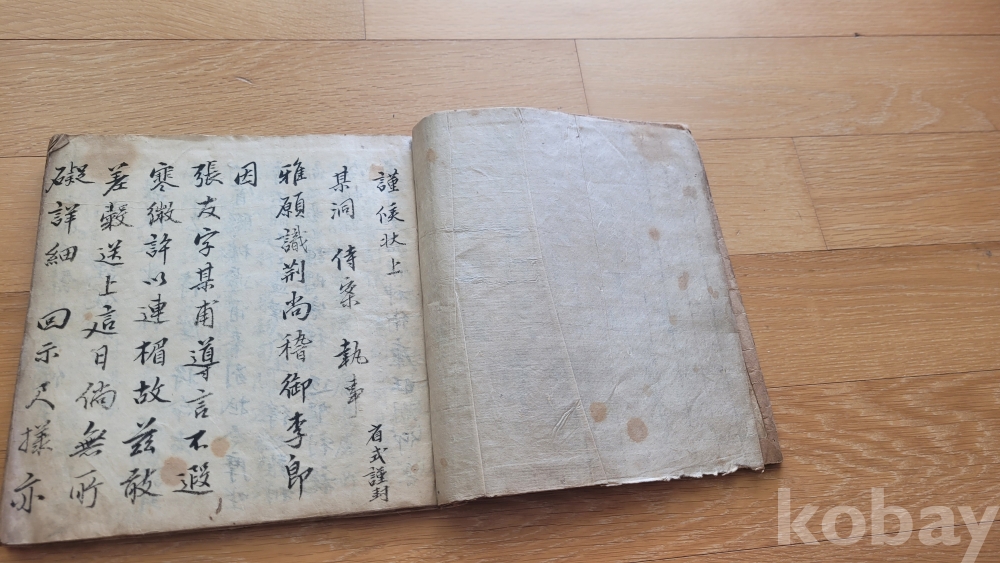 謹候狀上
某洞 侍案 執事 省式謹封
雅願識荆尚稽御李郎
因
張友字某甫導言不遐
寒微許以連楣故茲敢
差穀送上這日倘無所
礙詳細 回示尺㨾亦
kobay